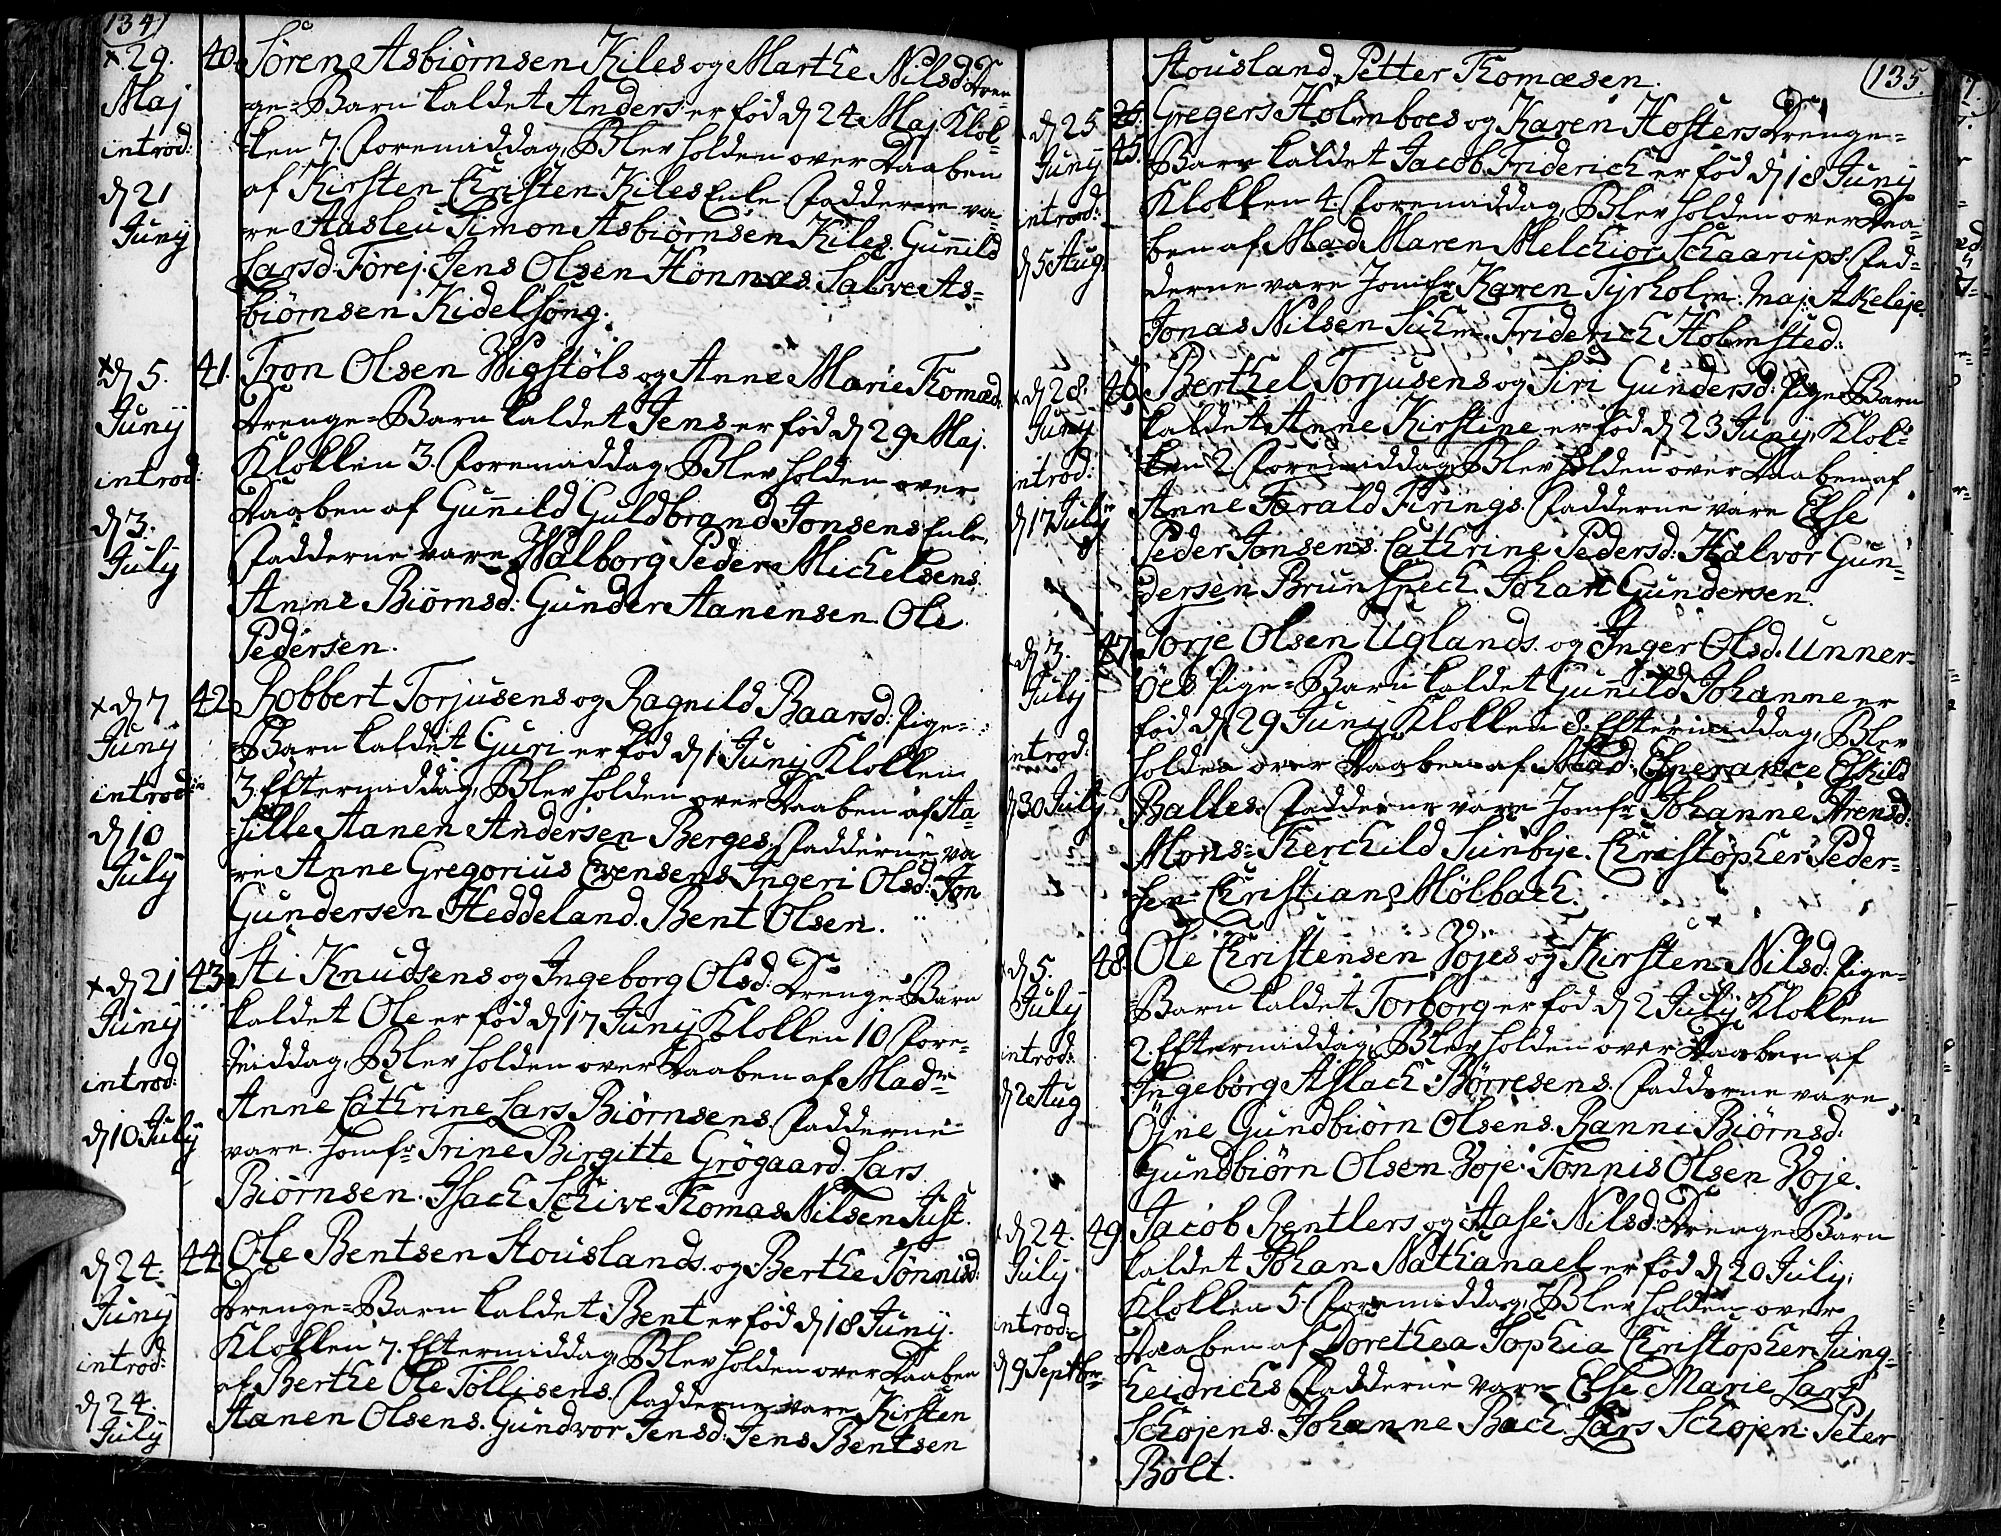 134
x. 29.
Maj
introd:
d 21
Junij
40. Sören Asbiörnsen Kiles og Marthe Nilsd: Dren-
ge=Barn kaldet Anders er föd d 24 Maj Klok-
ken 7. Foremiddag, Blev holden over Daaben
af Kirsten Christen Kiles Enke Fadderne va-
re Aasleu Simon Asbiörnsen Kiles. Gunnild
Larsd. Jens Olsen Hönnes. Salve As-
biörnsen Kidelsong.
x d 5.
Junij
introd:
d 3.
July
41. Tron Olsen Wigstöls og Anne Marie Thomæd:
Drenge=Barn kaldet Jens er föd d 29 Maj.
Klokken 3. Foremiddag, Blev holden over
Daaben af Gunnild Guldbrand Jonsens Enke,
Fadderne vare Walborg Peder Michelsens.
Anne Biörnsd: Gunder Aanensen. Ole
Pedersen.
x d 7
Junij
introd:
d 10
July
42. Robbert Torjusens og Ragnild Baarsd: Pige-
Barn kaldet Guri er föd d 1 Junij Klokken
3 Eftermiddag, Blev holden over Daaben af Aa-
sille Aanen Andersen Berges, Fadderne va
re Anne Gregorius Evensens Ingeri Olsd: Jon
Gundersen Heddeland. Bent Olsen.
x d 21
Junij
introd:
d 10 July
43. Sti Knudsens og Ingeborg Olsd: Drenge=Barn
kaldet Ole er föd d 17 Junij Klokken 10 Fore-
middag, Blev holden over Daaben af Madr:
Anne Cathrine Lars Biörnsens. Fadderne
vare. Jomfr: Trine Birgitte Grögaard. Lars
Biörnsen. Isach Schive Thomas Nilsen Just.
d 24.
Junij
introd:
d 24.
July
44. Ole Bentsen Stouslands. og Berthe Tönnisd:
Drenge=Barn kaldet Bent er föd d 18 Junij.
Klokken 7. Eftermiddag, Blev holden over Daaben
af Berthe Ole Tollisens. Fadderne vare Kirsten
Aanen Olsens. Gundvor Jensd: Jens Bentsen
135.
Stousland Petter Thomæsen.
d 25
Junij
introd:
d 5 Aug.
45. Gregers Holmboes og Karen Hosters Drenge=
Barn kaldet Jacob Friderich er föd d 18 Junij
Klokken 4. Foremiddag, Blev holden over Daa-
ben af Mad Maren Melchior Schaarups. Fad-
derne vare Jomfr Karen Tyrholm. Maj: Akeleje
Jonas Nilsen Suhm. Friderich Holmsted.
x d 28.
Junij
introd:
d 17 July
46. Berthel Torjusens og Siri Gundersd: Pige=Barn
kaldet Anne Kirstine er föd d 23 Junij, Klok-
ken 2 Foremiddag, Blev holden over Daaben af
Anne Tarald Firings. Fadderne vare Else
Peder Jonsens. Cathrine Pedersd: Halvor Gun-
dersen Brunspech. Johan Gundersen.
d 3.
July
introd:
d 30 July
47. Torje Olsen Uglands. og Inger Olsd. Unner-
öes Pige=Barn kaldet Gunild Johanne er
föd d 29 Junij Klokken 8. Eftermiddag, Blev
holden over Daaben af Mad: Esperance Eskild
Balles. Fadderne vare Jomfr: Johanne Arensd:
Mons: Therchild Sunbye. Christopher Peder-
sen Christian Mölbach.
d 5.
July
introd:
d 2 Aug
48. Ole Christensen Vöjes og Kirsten Nilsd: Pige-
Barn kaldet Torborg er föd d 2 July Klokken
2. Eftermiddag, Blev holden over Daaben af
Ingeborg Aslach Börresens. Fadderne vare
Öjne Gundbiörn Olsens. Ranni Biörnsd:
Gundbiörn Olsen Voje. Tönnis Olsen Voje.
d 24.
July
introd:
d 9 Septbr:
49. Jacob Rentlers og Aase Nilsd: Drenge=Barn
kaldet Johan Nathanael er föd d 20 July,
Klokken 5 Foremiddag, Blev holden over
Daaben af Dorethea Sophia Christopher Jung-
heidrichs Fadderne vare Else Marie Lars
Schojens. Johanne Bach. Lars Schojen. Peter
Bolt.